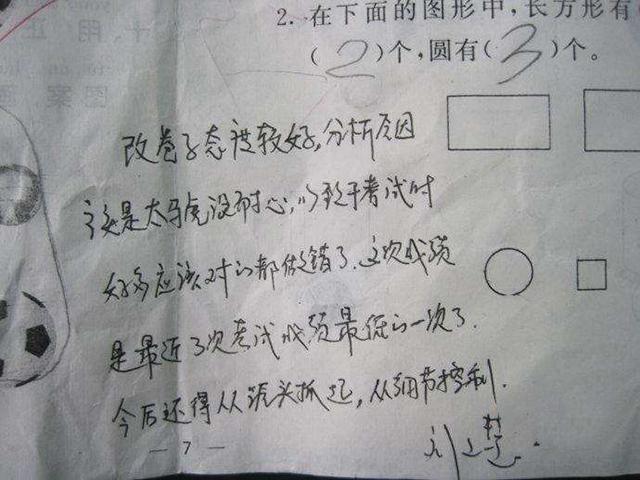 2. 在下面的图形中,长方形有(
(2)个,圆有(3)个。
改卷子态度较好,分析原因
主要是太马虎没耐心,以致于考试时
好多应该对的都做错了.这次成绩
是最近3次考试成绩最低的一次了.
今后还得从源头抓起,从细节控制.
— 7 —